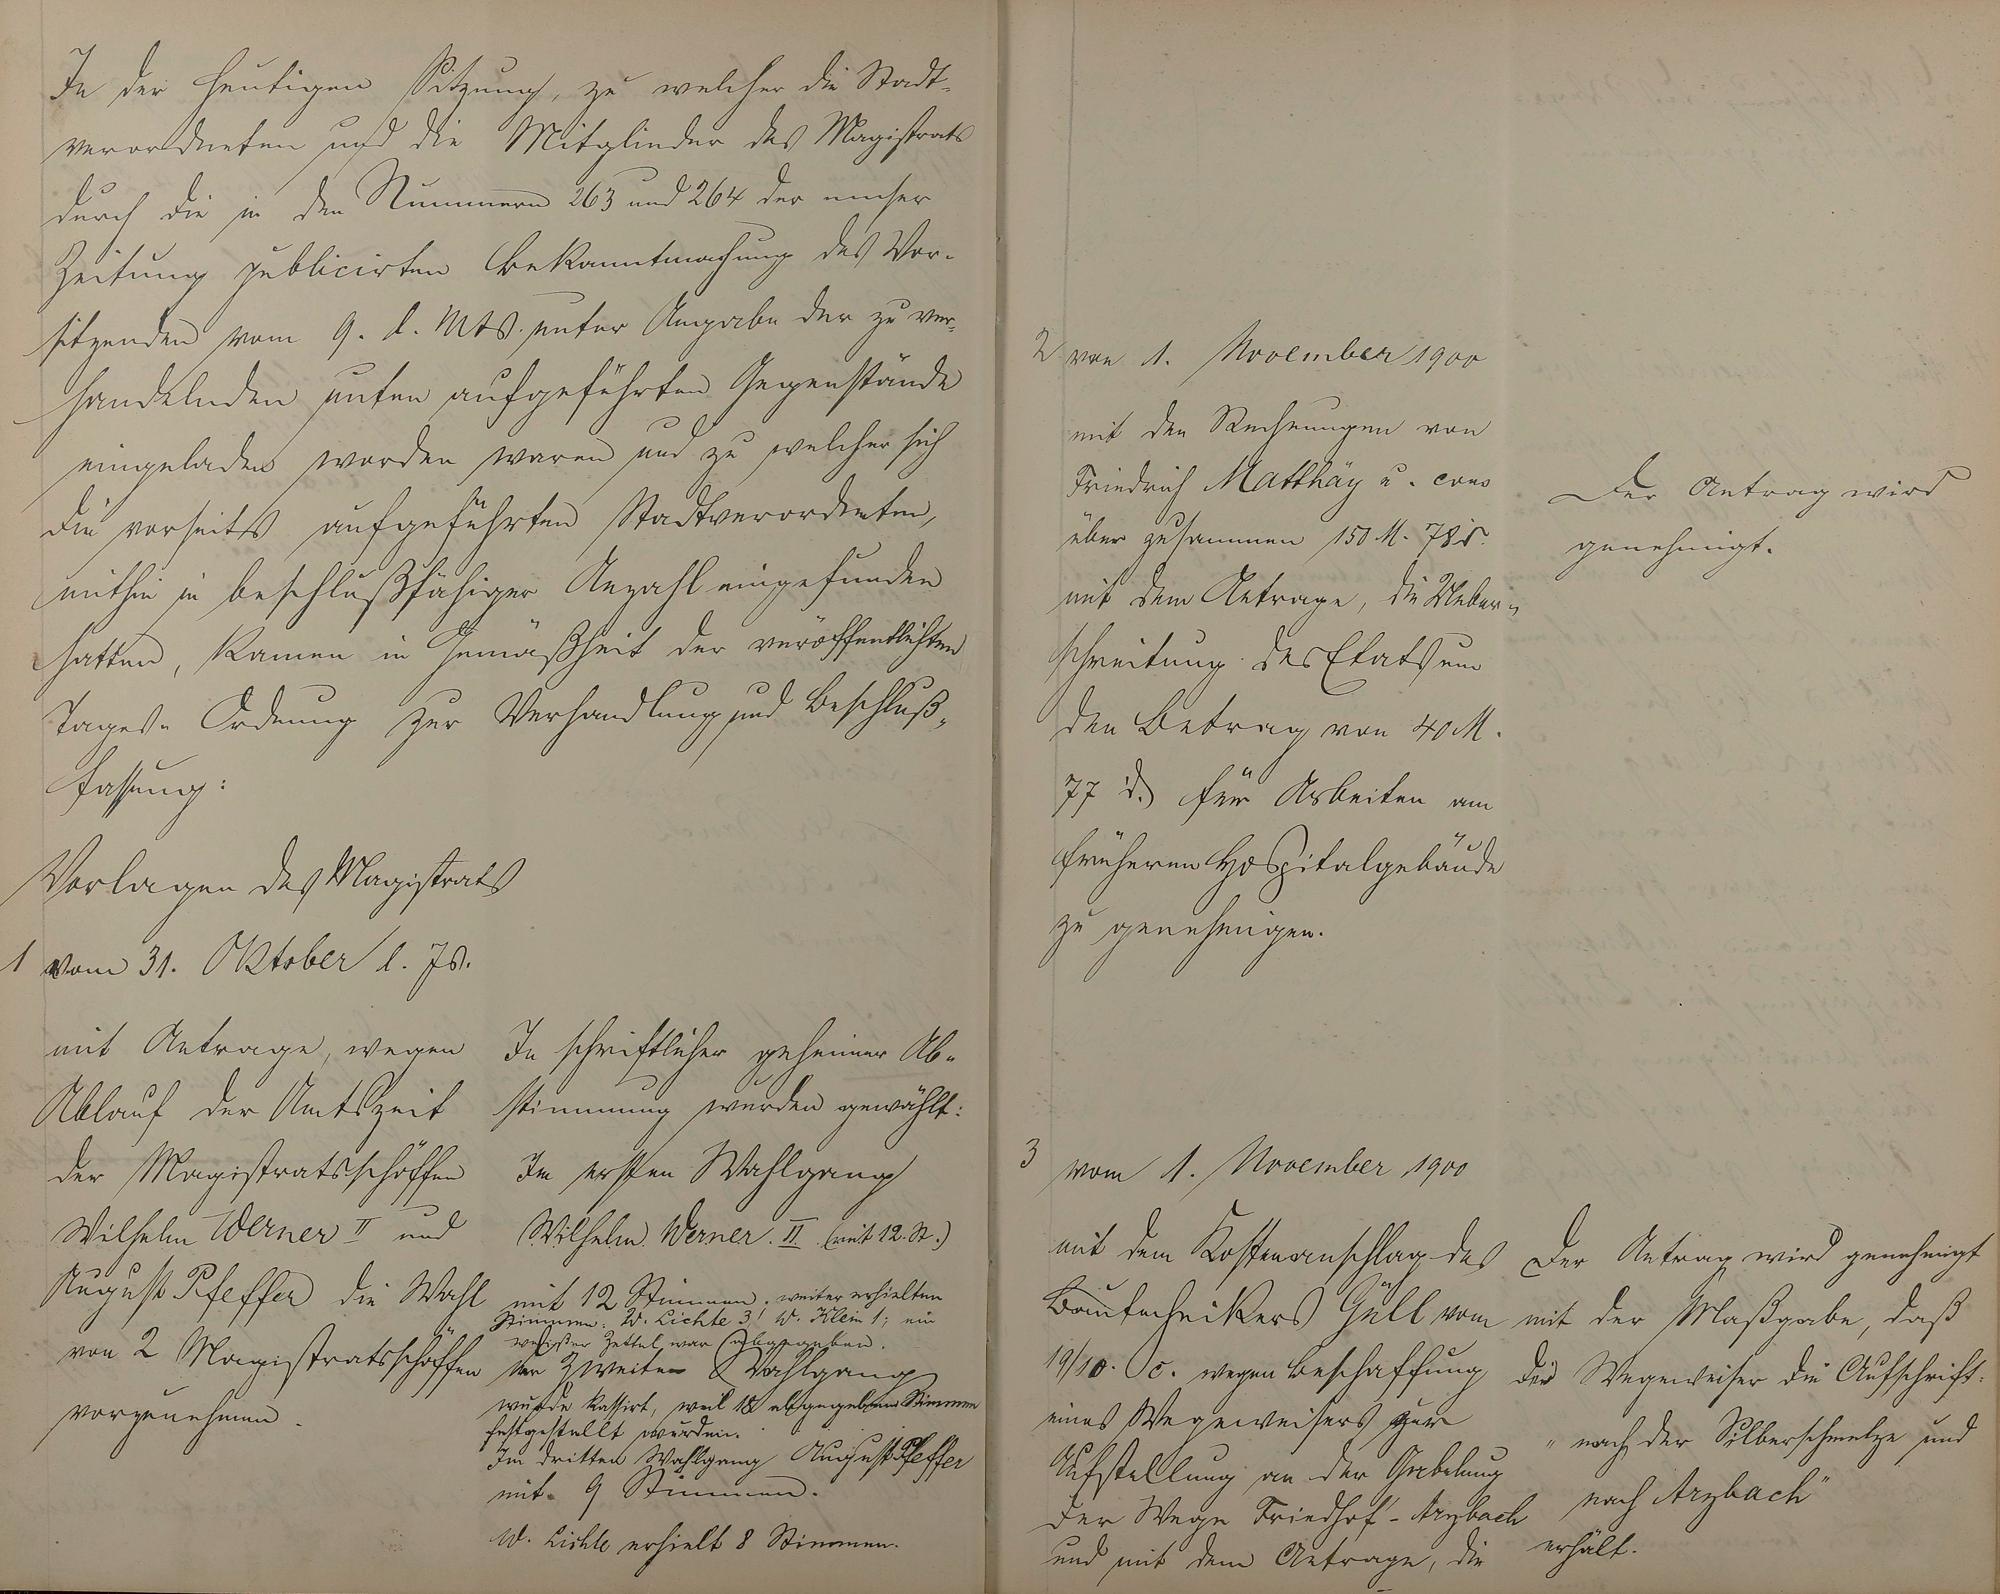 In der heutigen Sitzung, zu welcher die Stadt-
verordneten und die Mitglieder des Magistrats
durch die in den Nummern 263 und 264 der emser
Zeitung publicirten Bekanntmachung des Vor-
sitzenden vom 9. d. Mts. unter Angabe der zu ver-
handelnden unten aufgeführten Gegenstände
eingeladen worden waren und zu welcher sich
die vorseits aufgeführten Stadtverordneten,
mithin in beschlußfähiger Anzahl eingefunden
hatten, kamen in Gemäßheit der veröffentlichten
Tages- Ordnung zur Verhandlung und Beschluß-
fassung:
Vorlagen des Magistrats
1 vom 31. Oktober l. Js.
mit Antrage, wegen
Ablauf der Amtszeit
der Magistratsschöffen
Wilhelm Werner II und
August Pfeffer die Wahl
von 2 Magistratsschöffen
vorzunehmen.
In schriftlicher geheimer Ab-
stimmung wurden gewählt:
Im ersten Wahlgang
Wilhelm Werner II (mit 12. St.)
mit 12 Stimmen. weiter erhielten
Stimmen: W. Lichte 3; W. Klein 1; ein
weißer Zettel war abgegeben.
Der Zweite Wahlgang
wurde kassirt, weil 18 abgegebene Stimmen
festgestellt wurden.
Im dritten Wahlgang August Pfeffer
mit 9 Stimmen.
W. Lichte erhielt 8 Stimmen.
2 von 1. November 1900
mit den Rechnungen von
Friedrich Matthäy u. cons
über zusammen 150 M. 78 d.
mit dem Antrage, die Ueber-
schreitung des Etats um
den Betrag von 40 M.
77 d. für Arbeiten am
früheren Hospitalgebäude
zu genehmigen.
Der Antrag wird
genehmigt.
3 vom 1. November 1900
mit dem Kostenanschlag des
Bautechnikers Güll vom
19/10. c. wegen Beschaffung
eines Wegeweisers zur
Aufstellung an der Gabelung
der Wege Friedhof - Arzbach
und mit dem Antrage, die
Der Antrag wird genehmigt
mit der Maßgabe, daß
der Wegeweiser die Aufschrift:
"nach der Silberschmelze und
nach Arzbach"
erhält.